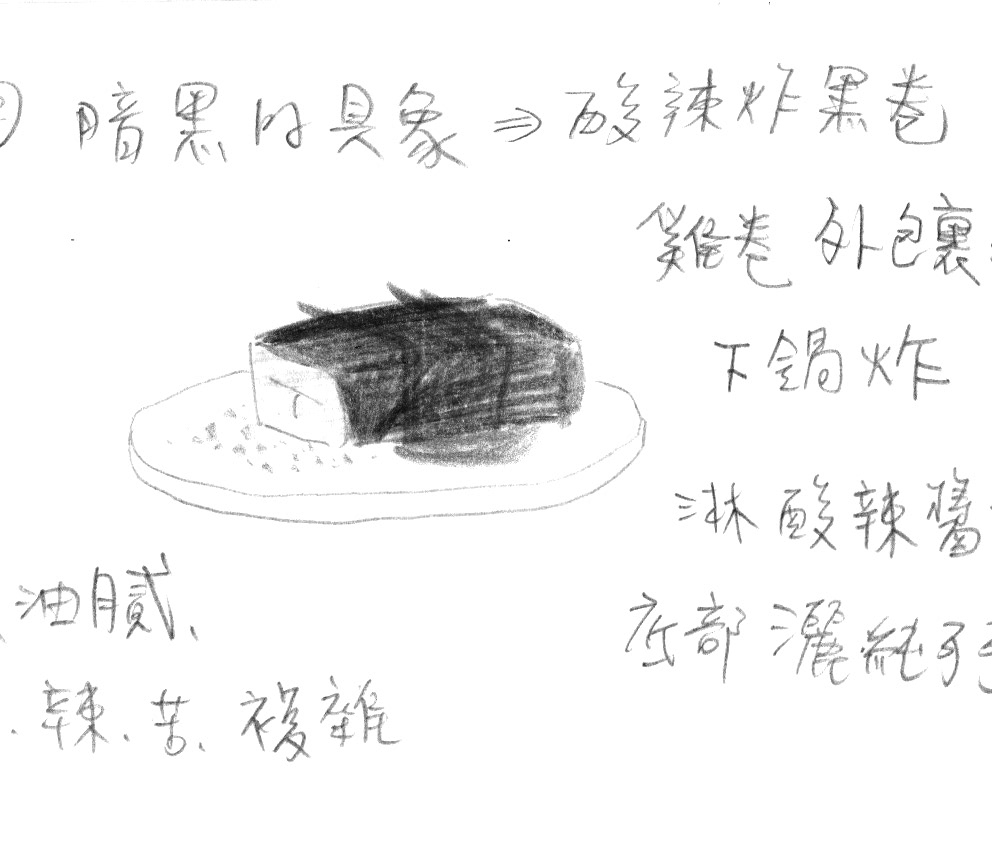 暗黑的具象 ⇒ 酸辣炸黑卷
雞卷 外包裹
下鍋炸
淋 酸辣醬
底部 灑純巧
油膩、
辣、苦、複雜